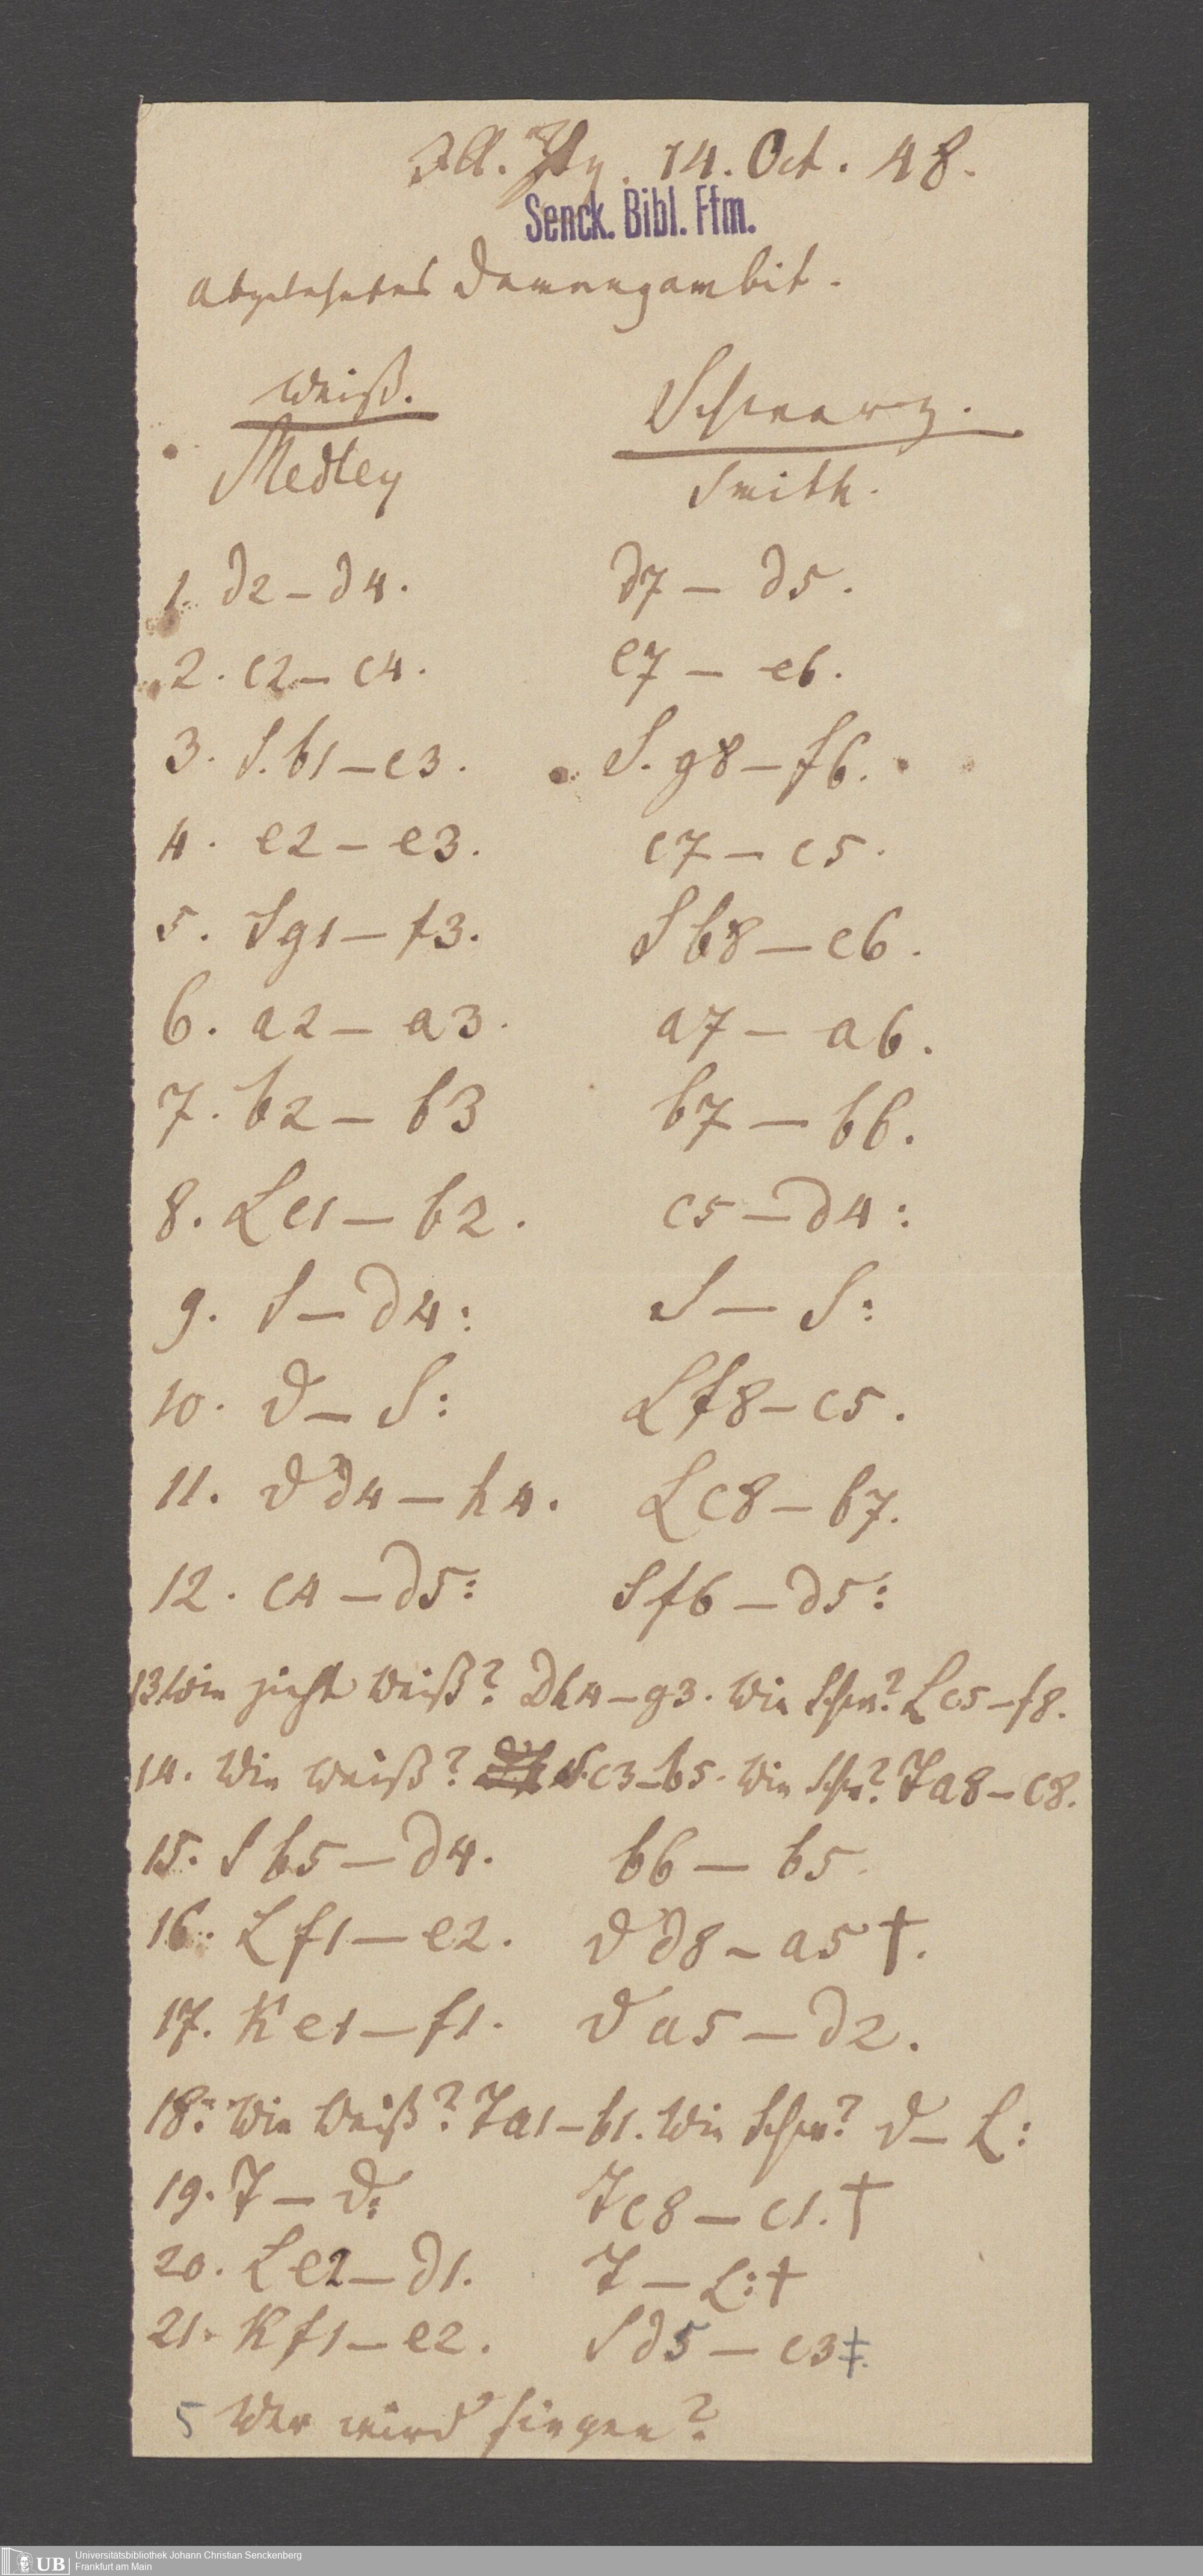 Ill. Ztg. 14. Oct. 48.
Senck. Bibl. Ffm.
Abgelehntes Damengambit.
Weiß. Schwarz.
Medley Smith.
1. d2 – d4. d7 – d5.
2. c2 – c4. e7 – e6.
3. S. b1 – c3. S. g8 – f6.
4. e2 – e3. c7 – c5.
5. Sg1 – f3. Sb8 – c6.
6. a2 – a3. a7 – a6.
7. b2 – b3 b7 – b6.
8. Lc1 – b2. c5 – d4:
9. S – d4: S – S:
10. D – S: Lf8 – c5.
11. Dd4 – h4. Lc8 – b7.
12. c4 – d5: Sf6 – d5:
13 Wie zieht Weiß? Dh4 – g3. Wie Schw? Lc5 – f8.
14. Wie Weiß? S. c3 – b5. Wie Schw? Ta8 – c8.
15. Sb5 – d4. b6 – b5.
16. Lf1 – e2. Dd8 – a5 †.
17. Ke1 – f1. Da5 – d2.
18. Wie Weiß? Ta1 – b1. Wie Schw? D – L:
19. T – D: Tc8 – c1. †
20. Le2 – d1. T – L: †
21. Kf1 – e2. Sd5 – c3 ‡.
5 Wer wird siegen?
UB Universitätsbibliothek Johann Christian Senckenberg
Frankfurt am Main